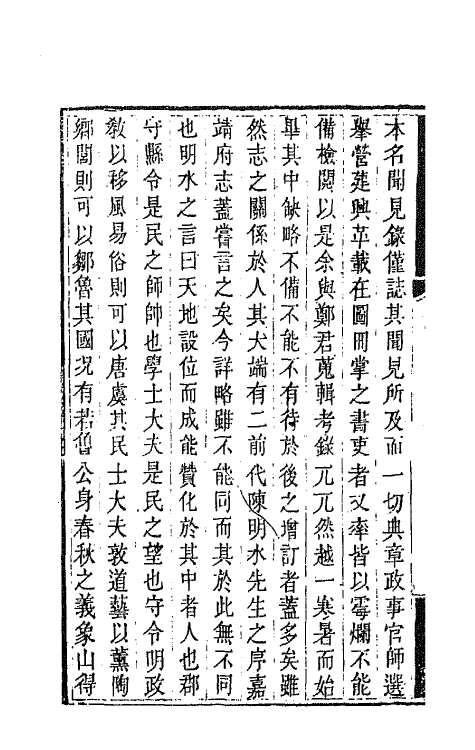 本名聞見錄僅誌其聞見所及而一切典章政事官師選
舉營建興革載在圖冊掌之書吏者又率皆以霉爛不能
備檢閱以是余與鄭君蒐輯考錄兀兀然越一寒暑而始
畢其中缺略不備不能不有待於後之增訂者蓋多矣雖
然志之關係於人其大端有二前代陳明水先生之序嘉
靖府志蓋嘗言之矣今詳略雖不能同而其於此無不同
也明水之言曰天地設位而成能贊化於其中者人也郡
守縣令是民之師帥也學士大夫是民之望也守令明政
敎以移風易俗則可以唐虞其民士大夫敦道藝以薰陶
鄉閭則可以鄒魯其國况有若魯公身春秋之義象山得